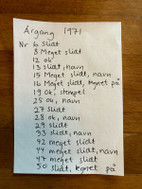 Årgang 1971
Nr 6 Slidt
8 Meget slidt
12 ok
13 slidt, navn
15 Meget slidt, navn
16 Meget slidt, tegnet på
19 ok, stempel
25 ok, navn
27 Slidt
28 ok, navn
29 slidt
33 slidt, navn
42 meget slidt
44 meget slidt, navn
47 meget slidt
50 slidt, tegnet på